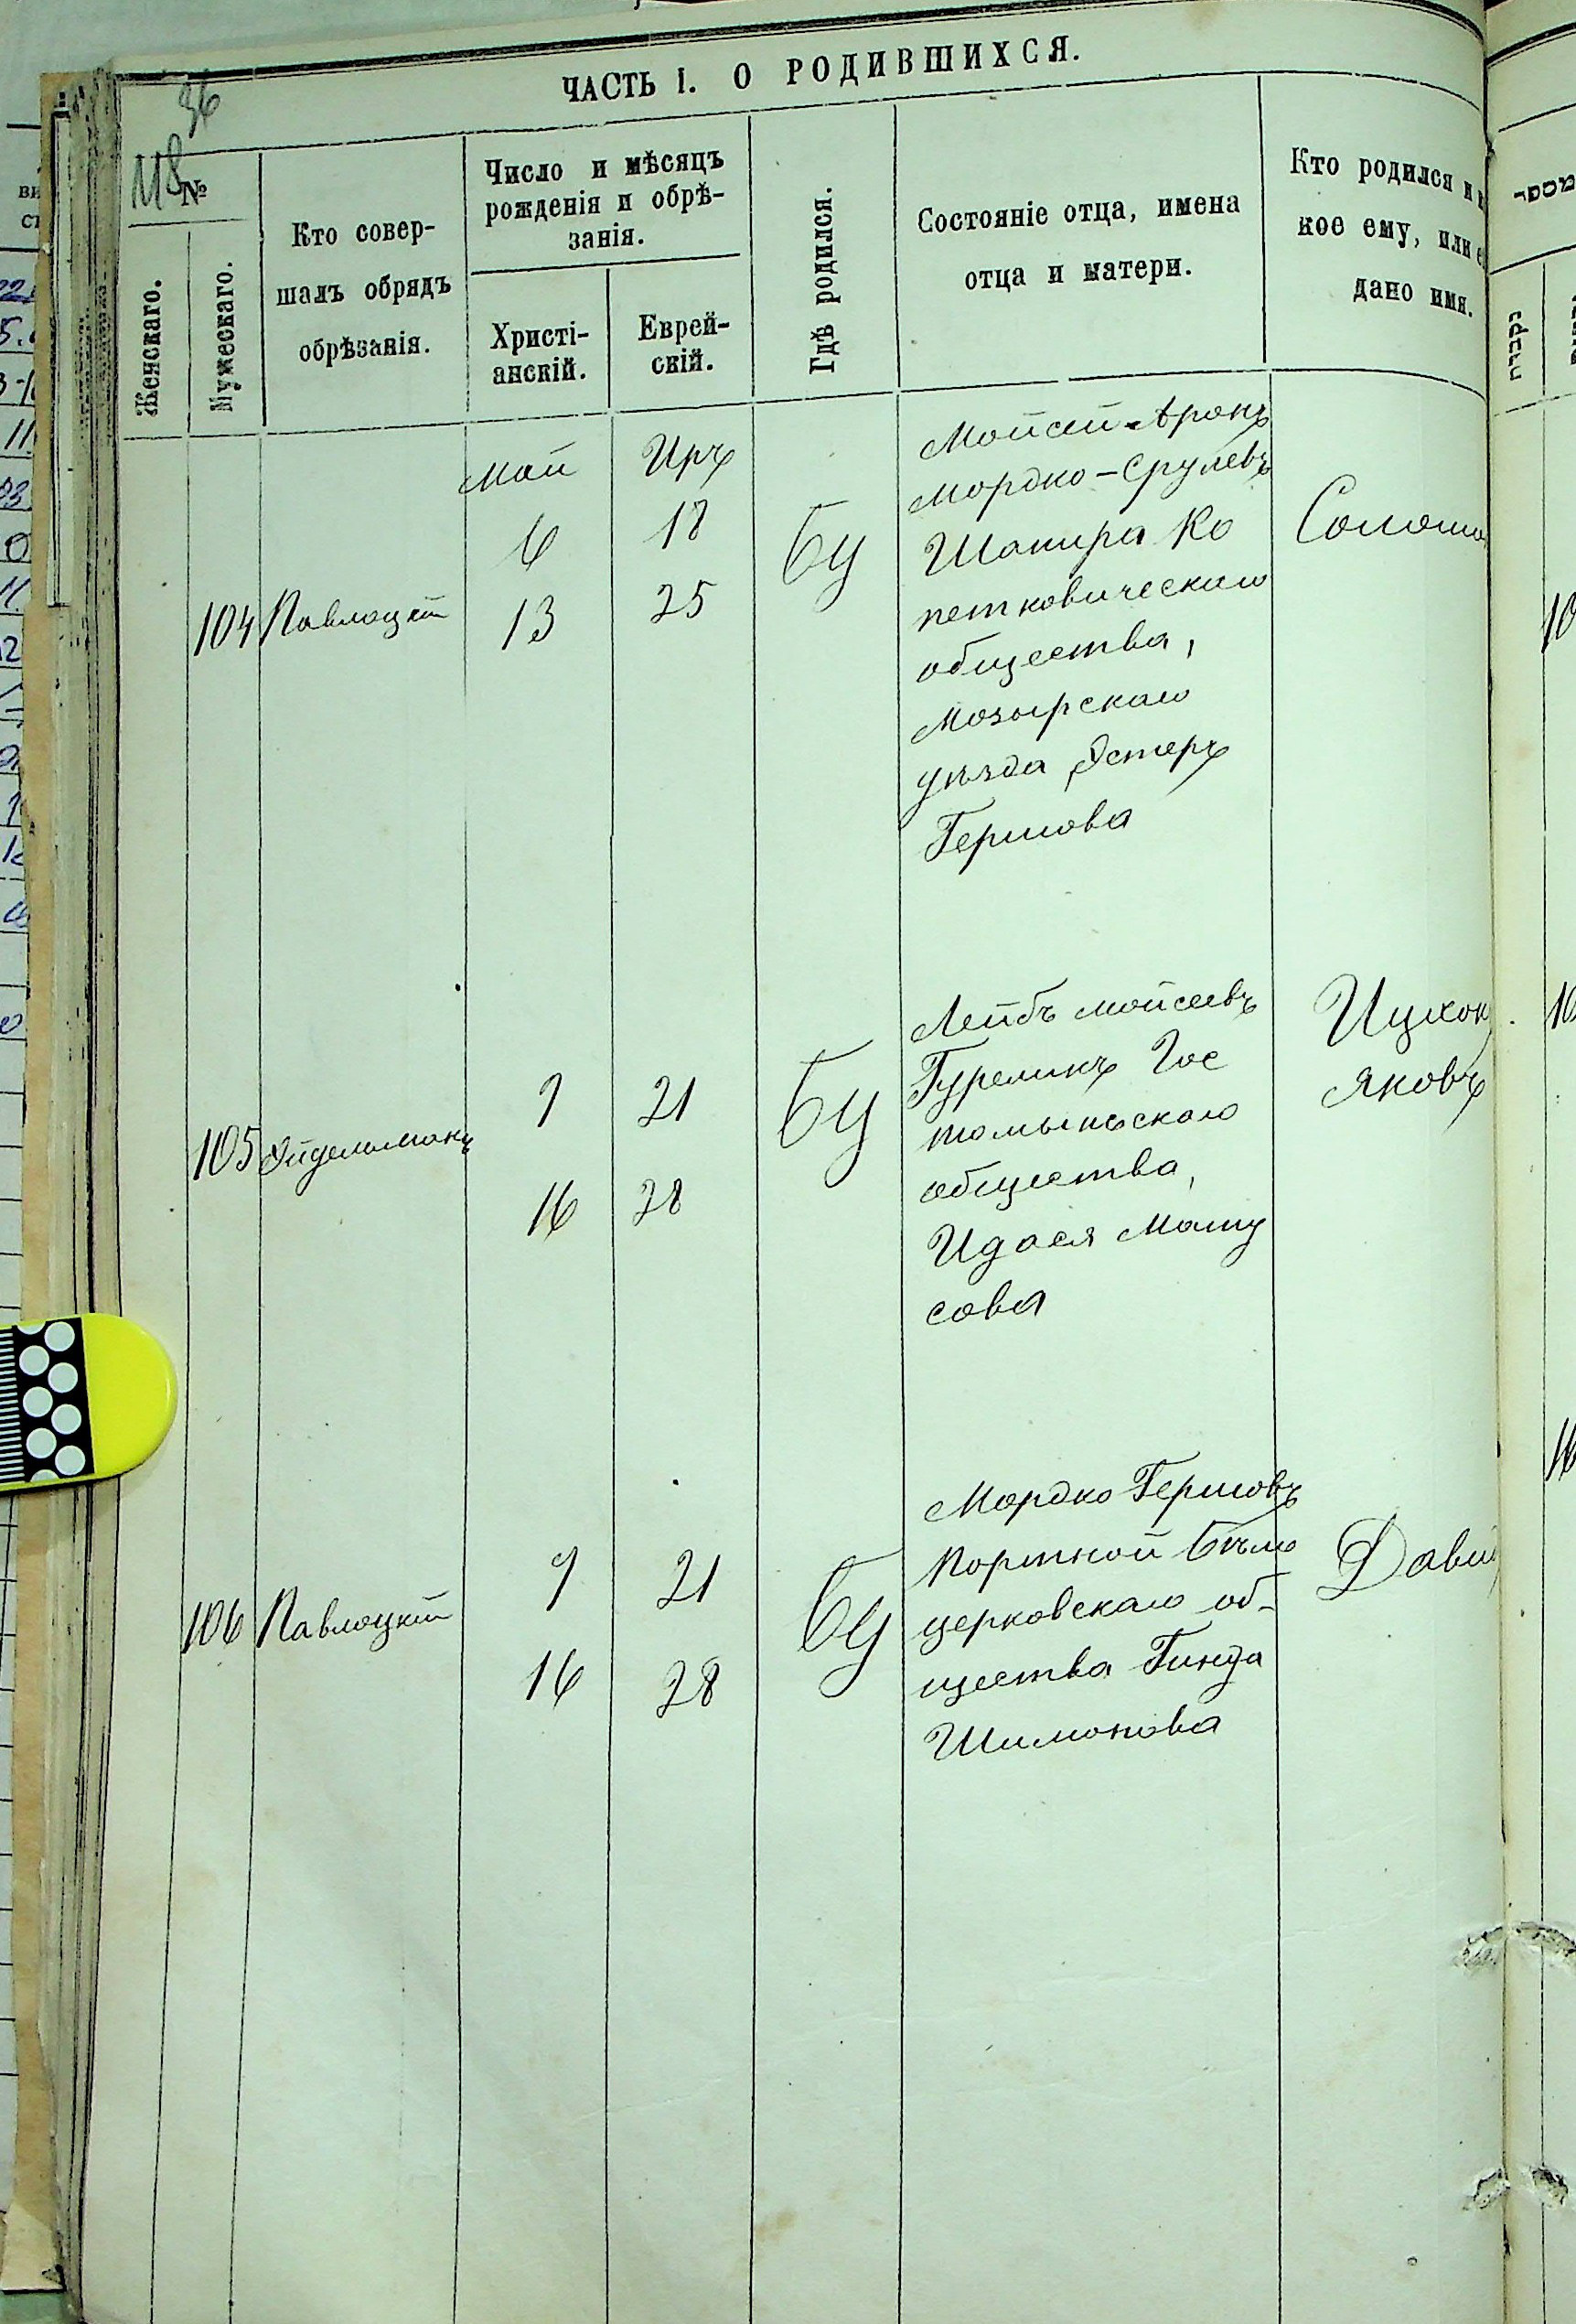 ЧАСТЬ I. О РОДИВШИХСЯ.
36
118
№
Женскаго.
Мужескаго.
Кто совер-
шалъ обрядъ
обрѣзанія.
Число и мѣсяцъ
рожденія и обрѣ-
занія.
Христі-
анскій.
Еврей-
скій.
Гдѣ родился.
Состояніе отца, имена
отца и матери.
Кто родился и к
кое ему, или е
дано имя.
מספר
נקבות
104
Павлоцкій
Май
6
13
Иръ
18
25
БЦ
Мойсей-Аронъ
Мордко-Срулевъ
Шапира Ко
петковическаго
общества,
Мозырскаго
уѣзда, Эстеръ
Гершова
Соломо
105
Эйдельманъ
9
16
21
28
БЦ
Лейбъ Мойсеевъ
Гуреликъ Гос
томыльскаго
общества,
Идася Мату
сова
Ицхок
Яковъ
106
Павлоцкій
9
16
21
28
БЦ
Мордко Гершовъ
Портной Бѣло
церковскаго об-
щества Гинда
Шимонова
Давид